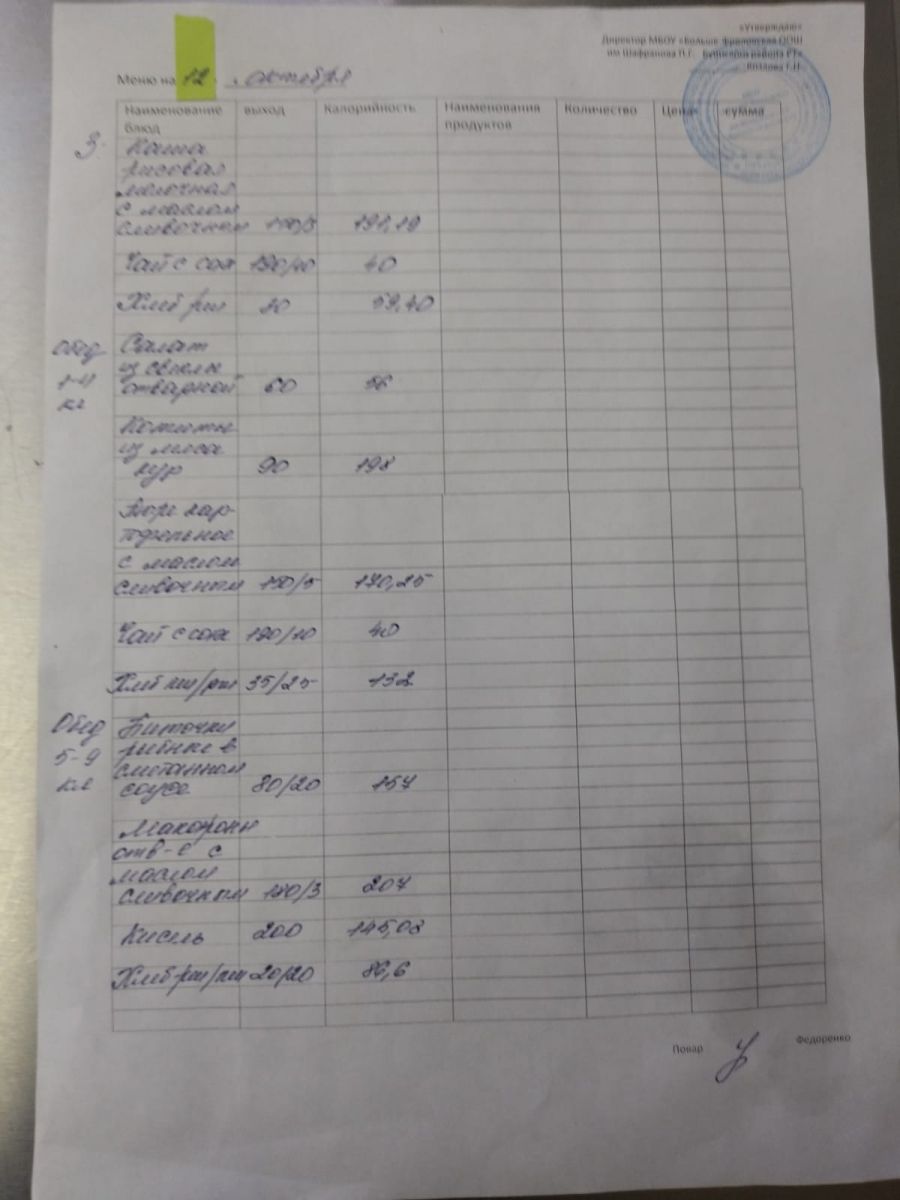 «Утверждаю»
Директор МБОУ «Больше-Фроловская ООШ
им Шафранова П.Г. Буинского района РТ»
Козлова Г.Н.
Меню на 12 октября
Наименование блюд выход Калорийность Наименования продуктов Количество Цена сумма
З. Каша
рисовая
молочная
с маслом
сливочном 191,19
Чай с сах 190/10 40
Хлеб рж 59,40
Обед Салат
1-4 из свеклы
кл отварной 60 56
Котлеты
из мяса
кур 90 198
Пюре кар-
тофельное
с маслом
сливочном 150/5 170,25
Чай с сах 190/10 40
Хлеб пш/рж 35/25 132
Обед Биточки
5-9 рыбные в
кл сметанном
соусе 80/20 157
Макароны
отв-е с
маслом
сливочном 180/3 207
Кисель 200 145,08
Хлеб рж/пш 20/20 86,6
Повар Федоренко